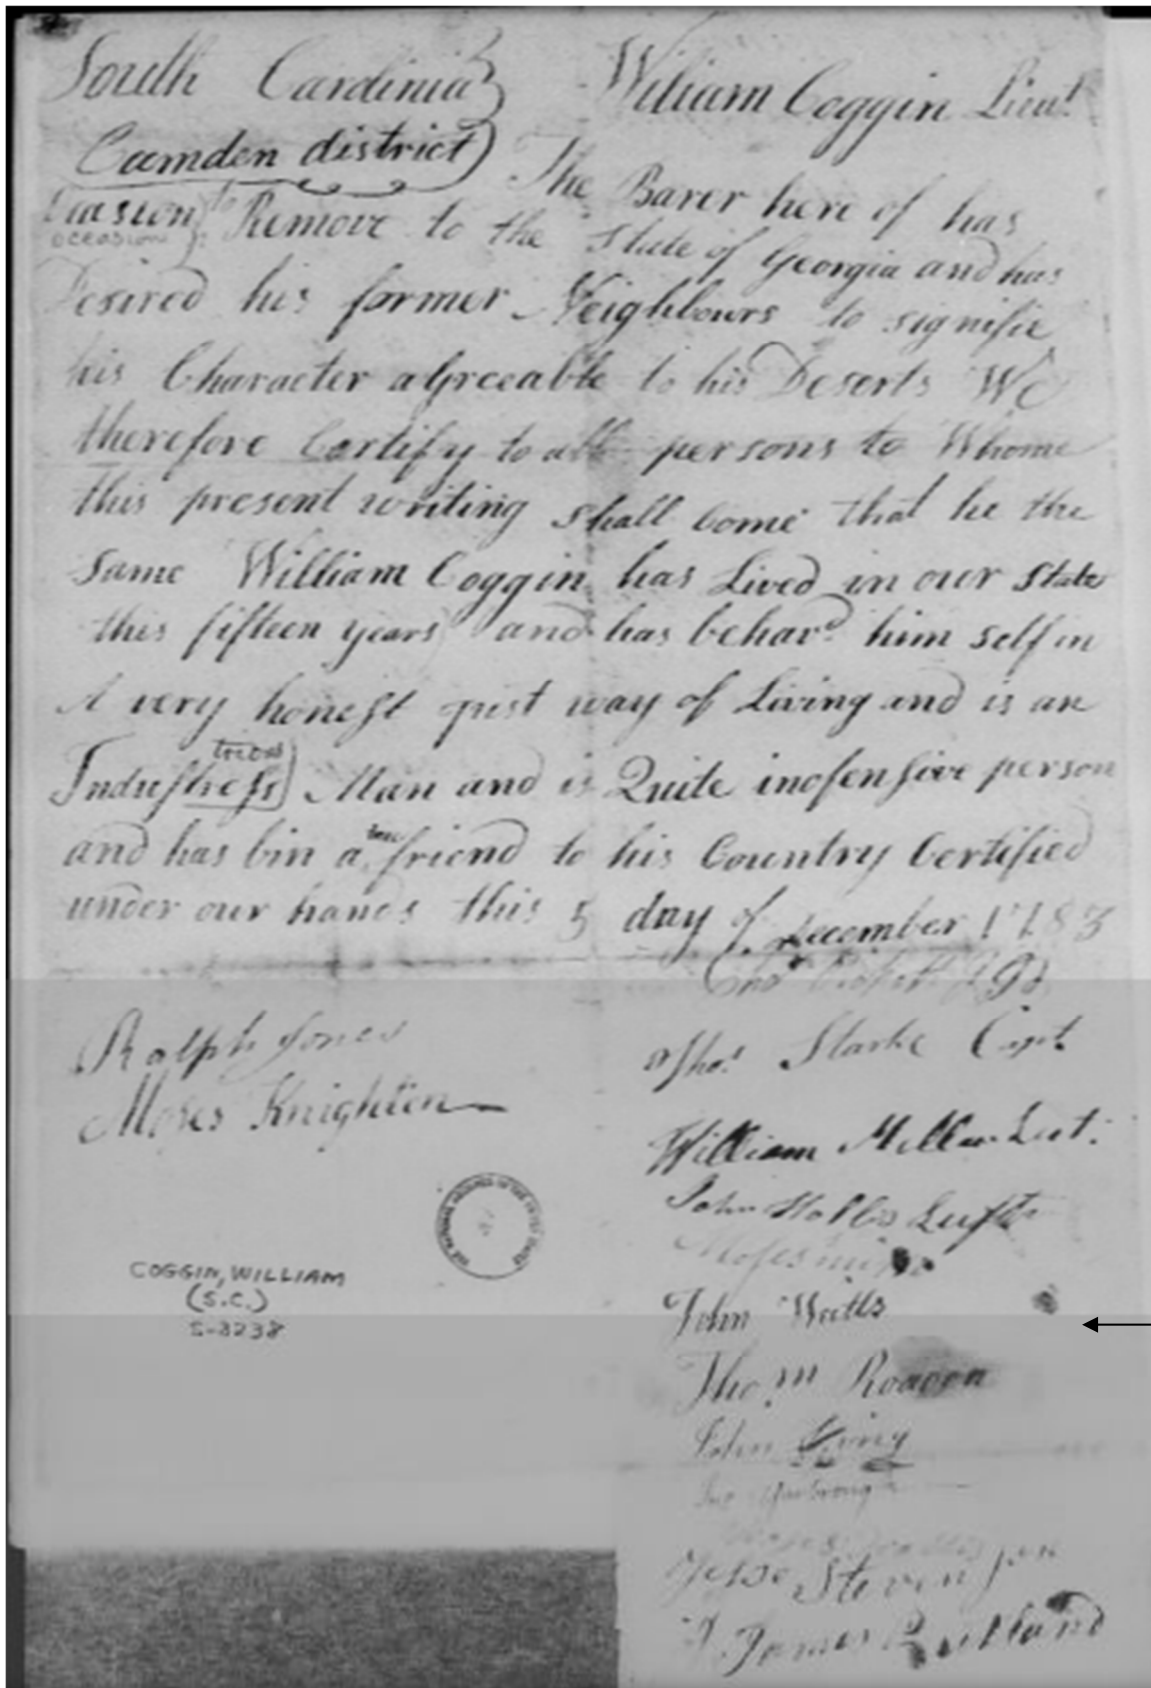 South Cardinia William Coggin Lieut
Camden district
The Barer here of has
occasion to Remove to the State of Georgia and has
Desired his former Neighbours to signifie
his Character aGreeable to his Deserts We
therefore Certify to all persons to Whome
this present writing shall Come that he the
same William Coggin has Lived in our State
this fifteen years and has behavd him self in
A very honest just way of Living and is an
Industress trious Man and is Quite inofensive person
and has bin a true friend to his Country Certified
under our hands this 5 day of December 1783
Ralph Jones
Moses Knighten
Thos Starke Capt
William Miller Lut.
John Hollis Luft
John Watts
Thom
John
Jesse Steven
James Rutland
COGGIN, WILLIAM
(S.C.)
S-3238